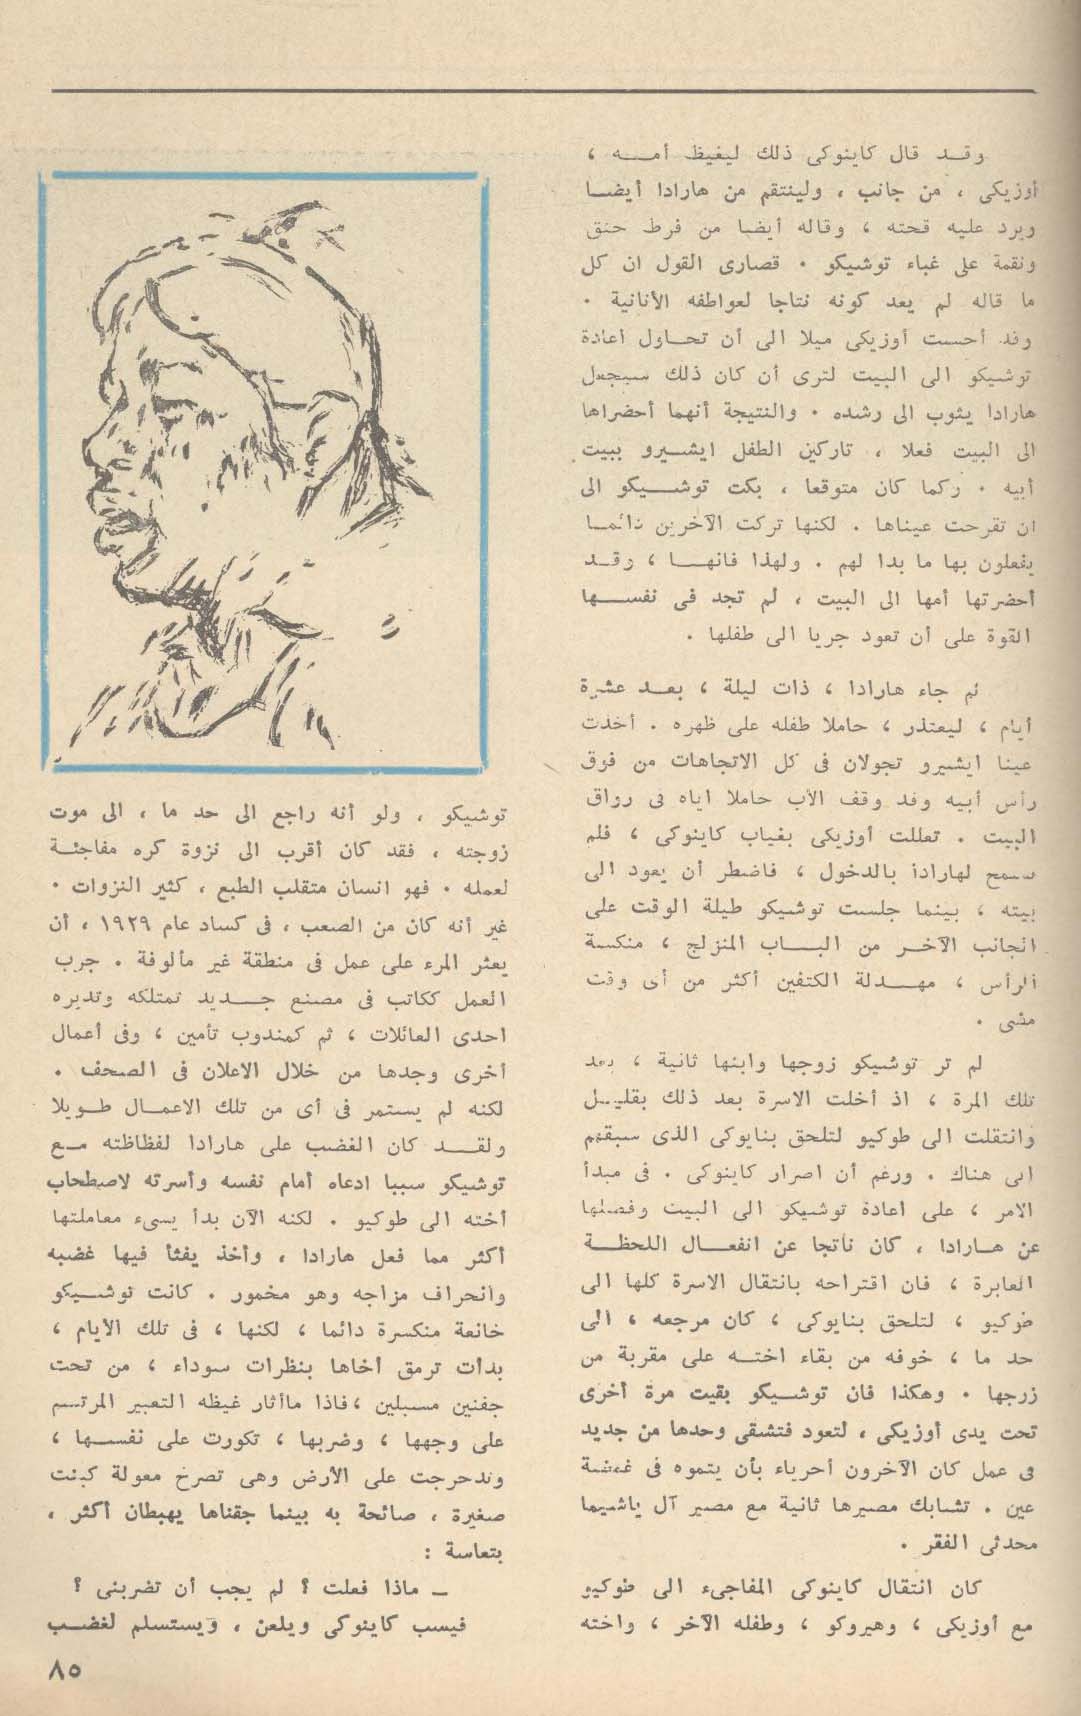 وقد قال كاينوكى ذلك ليغيظ أمه ،
أوزيكى ، من جانب ، ولينتقم من هارادا أيضا
ويرد عليه قحته ، وقاله أيضا من فرط حنق
ونقمة على غباء توشيكو . قصارى القول ان كل
ما قاله لم يعد كونه نتاجا لعواطفه الأنانية .
وقد أحست أوزيكى ميلا الى أن تحاول اعادة
توشيكو الى البيت لترى أن كان ذلك سيجعل
هارادا يثوب الى رشده . والنتيجة أنهما أحضراها
الى البيت فعلا ، تاركين الطفل ايشيرو ببيت
أبيه . وكما كان متوقعا ، بكت توشيكو الى
ان تقرحت عيناها . لكنها تركت الآخرين دائما
يفعلون بها ما بدا لهم . ولهذا فانها ، وقد
أحضرتها أمها الى البيت ، لم تجد فى نفسها
القوة على أن تعود جريا الى طفلها .
ثم جاء هارادا ، ذات ليلة ، بعد عشرة
أيام ، ليعتذر ، حاملا طفله على ظهره . أخذت
عينا ايشيرو تجولان فى كل الاتجاهات من فوق
رأس أبيه وقد وقف الأب حاملا اياه فى رواق
البيت . تعللت أوزيكى بغياب كاينوكى ، فلم
تسمح لهارادا بالدخول ، فاضطر أن يعود الى
بيته ، بينما جلست توشيكو طيلة الوقت على
الجانب الآخر من الباب المنزلج ، منكسة
الرأس ، مهدلة الكتفين أكثر من أى وقت
مضى .
لم تر توشيكو زوجها وابنها ثانية ، بعد
تلك المرة ، اذ أخلت الاسرة بعد ذلك بقليل
وانتقلت الى طوكيو لتلحق بنايوكى الذى سبقهم
الى هناك . ورغم أن اصرار كاينوكى . فى مبدأ
الامر ، على اعادة توشيكو الى البيت وفصلها
عن هارادا ، كان ناتجا عن انفعال اللحظة
العابرة ، فان اقتراحه بانتقال الاسرة كلها الى
طوكيو ، لتلحق بنايوكى ، كان مرجعه ، الى
حد ما ، خوفه من بقاء اخته على مقربة من
زوجها . وهكذا فان توشيكو بقيت مرة أخرى
تحت يدى أوزيكى ، لتعود فتشقى وحدها من جديد
فى عمل كان الآخرون أحرياء بأن يتموه فى غمضة
عين . تشابك مصيرها ثانية مع مصير آل ياشيما
محدثى الفقر .
كان انتقال كاينوكى المفاجىء الى طوكيو
مع أوزيكى ، وهيروكو ، وطفله الآخر ، واخته
توشيكو ، ولو أنه راجع الى حد ما ، الى موت
زوجته ، فقد كان أقرب الى نزوة كره مفاجئة
لعمله . فهو انسان متقلب الطبع ، كثير النزوات .
غير أنه كان من الصعب ، فى كساد عام ١٩٢٩ ، أن
يعثر المرء على عمل فى منطقة غير مألوفة . جرب
العمل ككاتب فى مصنع جديد تمتلكه وتديره
احدى العائلات ، ثم كمندوب تأمين ، وفى أعمال
أخرى وجدها من خلال الاعلان فى الصحف .
لكنه لم يستمر فى أى من تلك الاعمال طويلا
ولقد كان الغضب على هارادا لفظاظته مع
توشيكو سببا ادعاه أمام نفسه وأسرته لاصطحاب
أخته الى طوكيو . لكنه الآن بدأ يسىء معاملتها
أكثر مما فعل هارادا ، وأخذ يفثأ فيها غضبه
وانحراف مزاجه وهو مخمور . كانت توشيكو
خانعة منكسرة دائما ، لكنها ، فى تلك الأيام ،
بدأت ترمق أخاها بنظرات سوداء ، من تحت
جفنين مسبلين ، فاذا ماأثار غيظه التعبير المرتسم
على وجهها ، وضربها ، تكورت على نفسها ،
وتدحرجت على الأرض وهى تصرخ معولة كبنت
صغيرة ، صائحة به بينما جفناها يهبطان أكثر ،
بتعاسة :
ــ ماذا فعلت ؟ لم يجب أن تضربنى ؟
فيسب كاينوكى ويلعن ، ويستسلم لغضب
٨٥